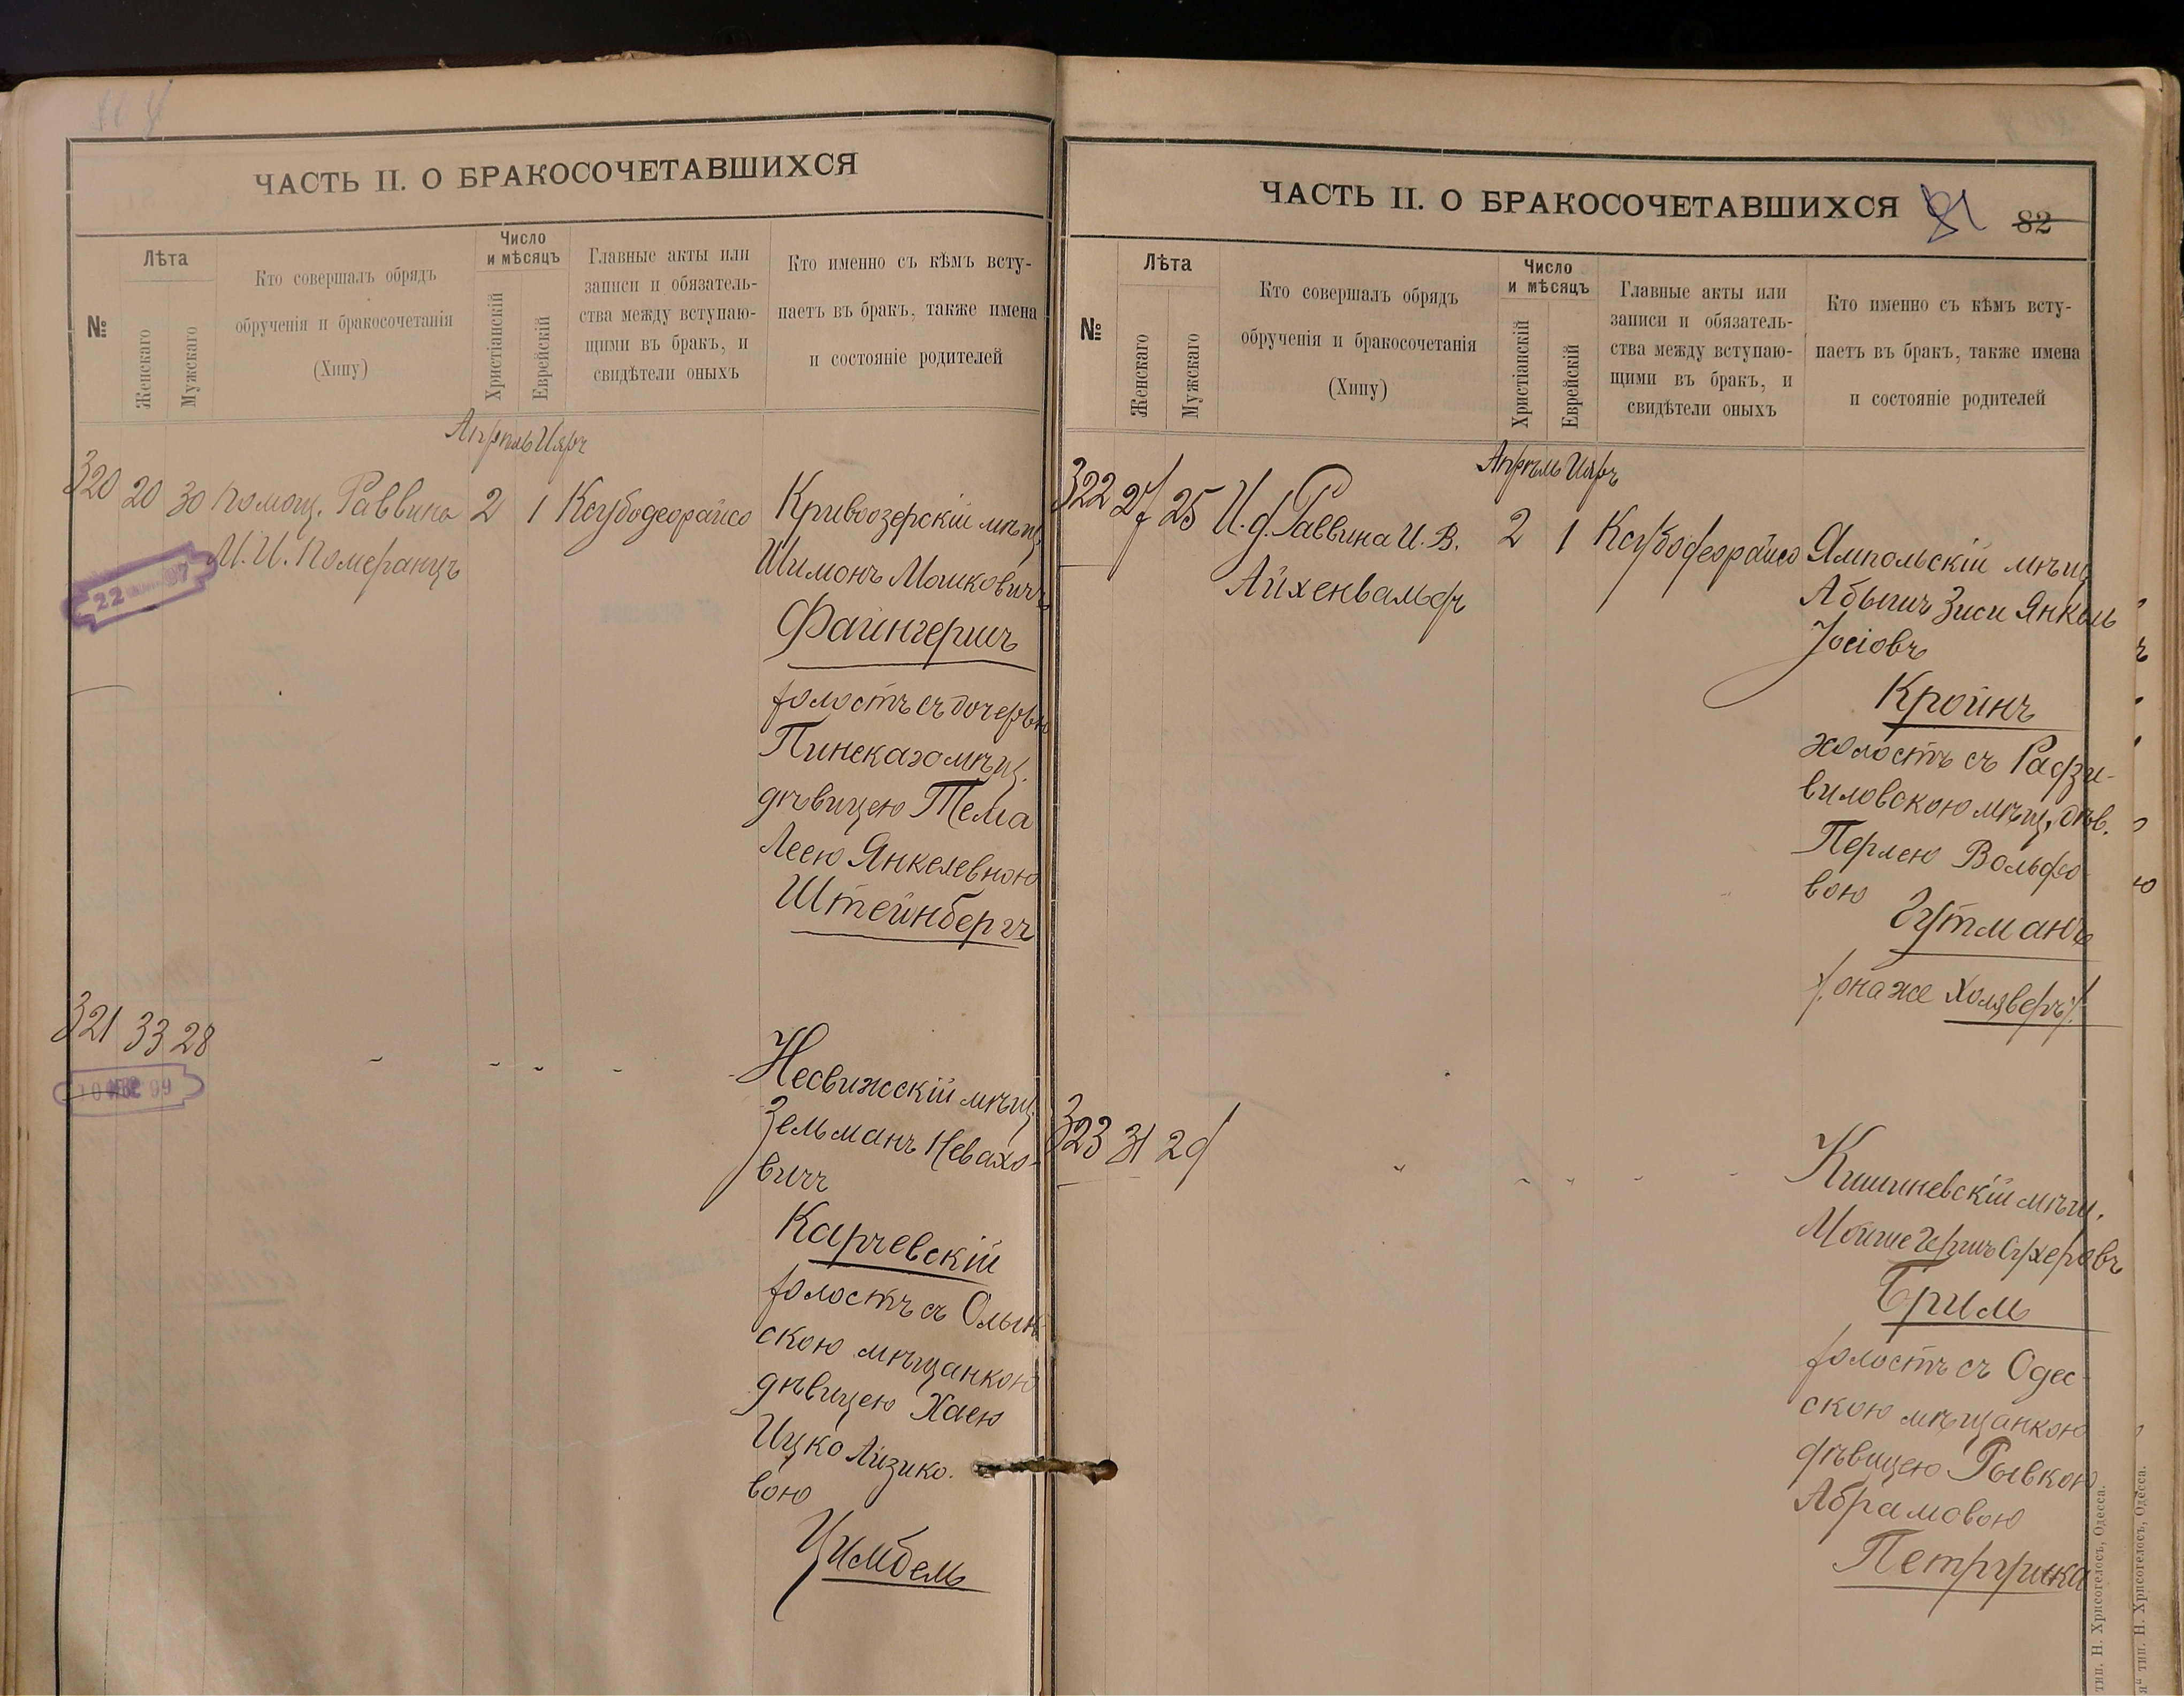 ЧАСТЬ II. О БРАКОСОЧЕТАВШИХСЯ
№
Лѣта
Женскаго
Мужскаго
Кто совершалъ обрядъ
обрученія и бракосочетанія
(Хипу)
Число
и мѣсяцъ
Христіанскій
Еврейскій
Главные акты или
записи и обязатель-
ства между вступаю-
щими въ бракъ, и
свидѣтели оныхъ
Кто именно съ кѣмъ всту-
паетъ въ бракъ, также имена
и состояніе родителей
Апрѣль Іяръ
320 20 30 Помощ. Раввина 2 1 Ксубодеорайсо
М. И. Померанцъ
22
Кривоозерскій мѣщ.
Шимонъ Мошковичъ
Файнгершъ
холостъ съ дочерью
Пинскаго мѣщ.
дѣвицею Тема
Леею Янкелевною
Штейнбергъ
321 33 28
99
Несвижскій мѣщ.
Зельманъ Невахо-
вичъ
Карчевскій
холостъ съ Олык-
скою мѣщанкою
дѣвицею Хаею
Ицко Айзико-
вою
Цимбель
ЧАСТЬ II. О БРАКОСОЧЕТАВШИХСЯ
81 82
№
Лѣта
Женскаго
Мужскаго
Кто совершалъ обрядъ
обрученія и бракосочетанія
(Хипу)
Число
и мѣсяцъ
Христіанскій
Еврейскій
Главные акты или
записи и обязатель-
ства между вступаю-
щими въ бракъ, и
свидѣтели оныхъ
Кто именно съ кѣмъ всту-
паетъ въ бракъ, также имена
и состояніе родителей
Апрѣль Іяръ
322 27 25 И. д. Раввина И. В. 2 1 Ксубодеорайсо
Айхенвальдъ
Ямпольскій мѣщ.
Абышъ Зиси Янкель
Іосіовъ
Кройнъ
холостъ съ Радзи-
виловскою мѣщ. дѣв.
Перлею Вольфо-
вою
Гутманъ
/. она же Холяверъ ./
323 31 29
Кишиневскій мѣщ.
Мойше Гершъ Сухеровъ
Бримъ
холостъ съ Одес-
скою мѣщанкою
дѣвицею Рывкою
Абрамовою
Петрушка
тип. Н. Хрисогелосъ, Одесса.
я“ тип. Н. Хрисогелосъ, Одесса.